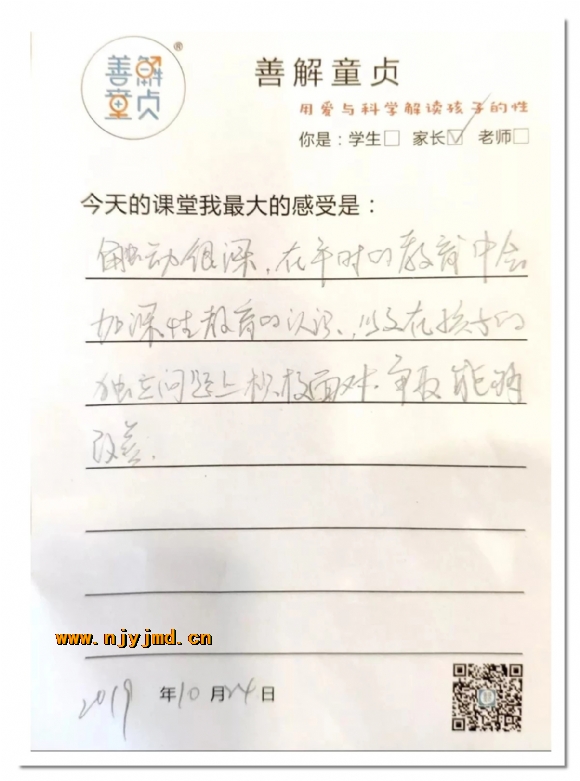 善解
童贞
®
善解童贞
用爱与科学解读孩子的性
你是：学生□ 家长☑ 老师□
今天的课堂我最大的感受是：
触动很深，在平时的教育中会
加深性教育的认识，以及在孩子的
独立问题上积极面对．争取能够
改善．
www.njyjmd.cn
2019 年10月24日